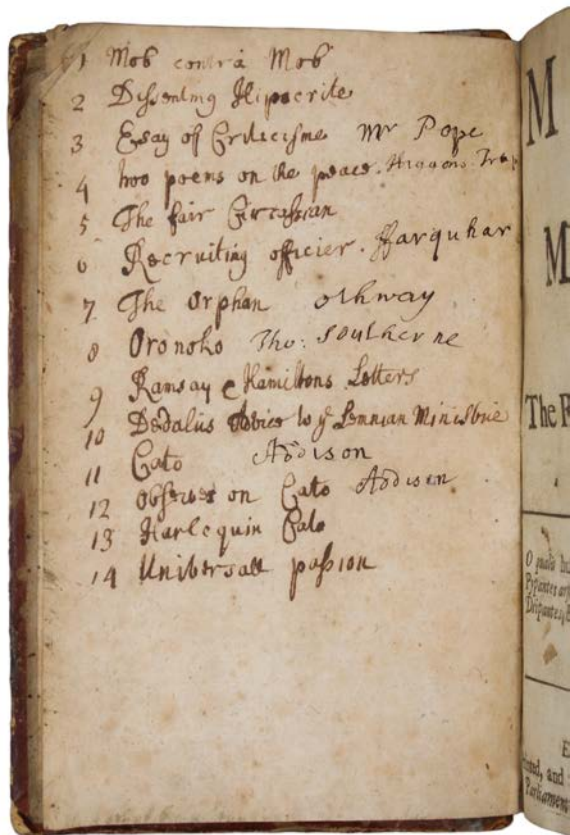 1 Mob contrà Mob
2 Dissenting Hipocrite
3 Essay of Criticisme Mr Pope
4 two poems on the peace. Higgons. 
5 The fair Circassian
6 Recruiting officier. ffarquhar
7 The Orphan othway
8 Oronoko Tho: Southerne
9 Ramsay & Hamiltons Letters
10 Dedalus Advice to ye Lemnian Ministrie
11 Cato Addison
12 observes on Cato Addison
13 Harlequin Cato
14 Universall passion
M
M
The
O
E
and
Parliament